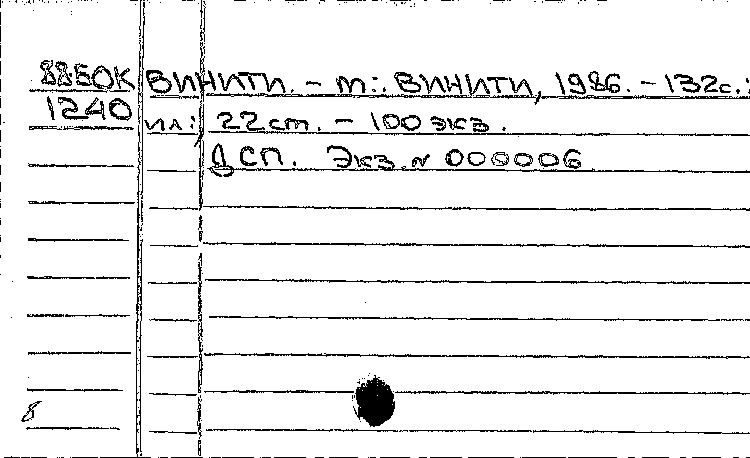 88БОК ВИНИТИ. - М.: ВИНИТИ, 1986. - 132с.:
1240 ил.; 22cm. - 100 экз.
ДСП. Экз. N 000006
8